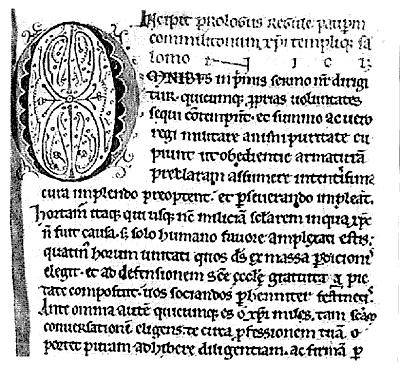 Incipit prologus regule paupm̄
commilitonum xp̄i templiq; sa
lomo n i c i
OMNIBUS in p̄mis sermo nr̄ dirigi
tur. quicumq; p̄prias voluntates
sequi cōtempnt̄. et summo ac vero
regi militare animi puritate cu
piunt ut obedientie armaturā
preclaram assumere intentissima
cura implendo preoptent. et p̄seuerando impleāt.
Hortam̄ itaq; qui usq; nc̄ miliciā sclarem in qua xp̄c
n̄ fuit causa. s; solo humano fauore amplexati estis.
quatin᷒ horum unitati quos ds̄ ex massa p̄dicionis
elegit. et ad defensionem sc̄e eccl̄e gratuita pie
tate composuit. uos sociandos p̄henniter festinet᷒.
Ante omnia autē quicumq; es o xp̄i miles. tam sc̄am
conuersationem eligens. te circa p̄fessionem tuā. o
portet puram adhibere diligentiam. ac firmā p̄